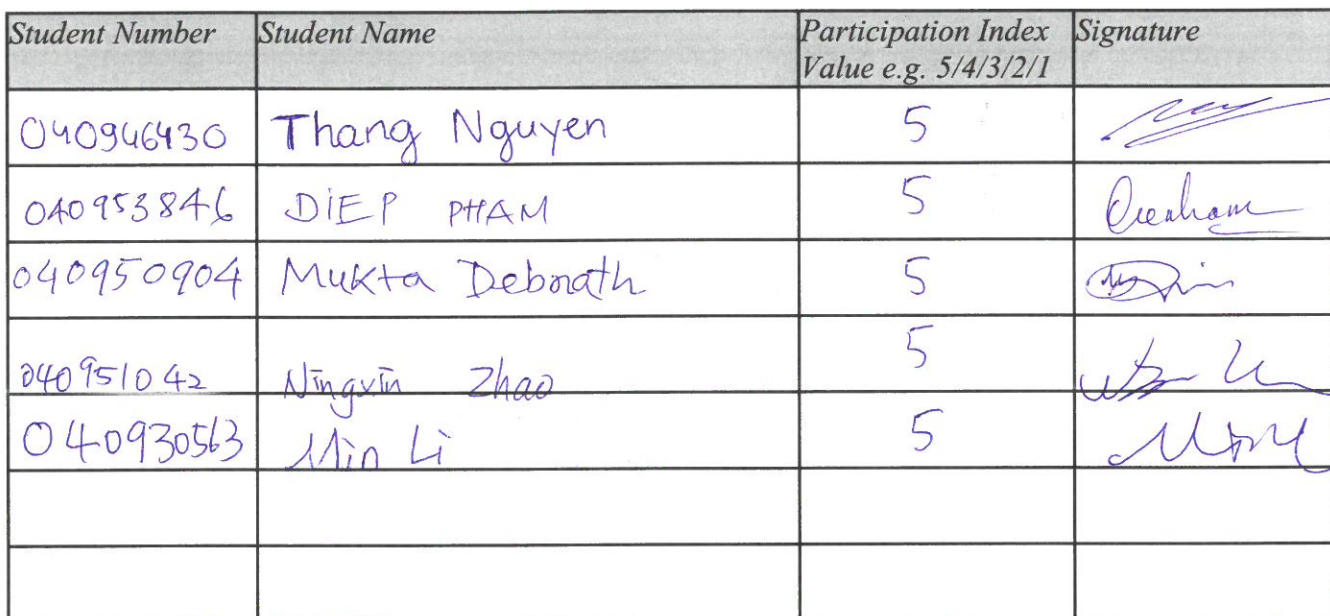 Student Number Student Name Participation Index Signature
Value e.g. 5/4/3/2/1
040946430 Thang Nguyen 5
040953846 DiEP PHAM 5
040950904 Mukta Debnath 5
040951042 Ningxin Zhao 5
040930563 Min Li 5